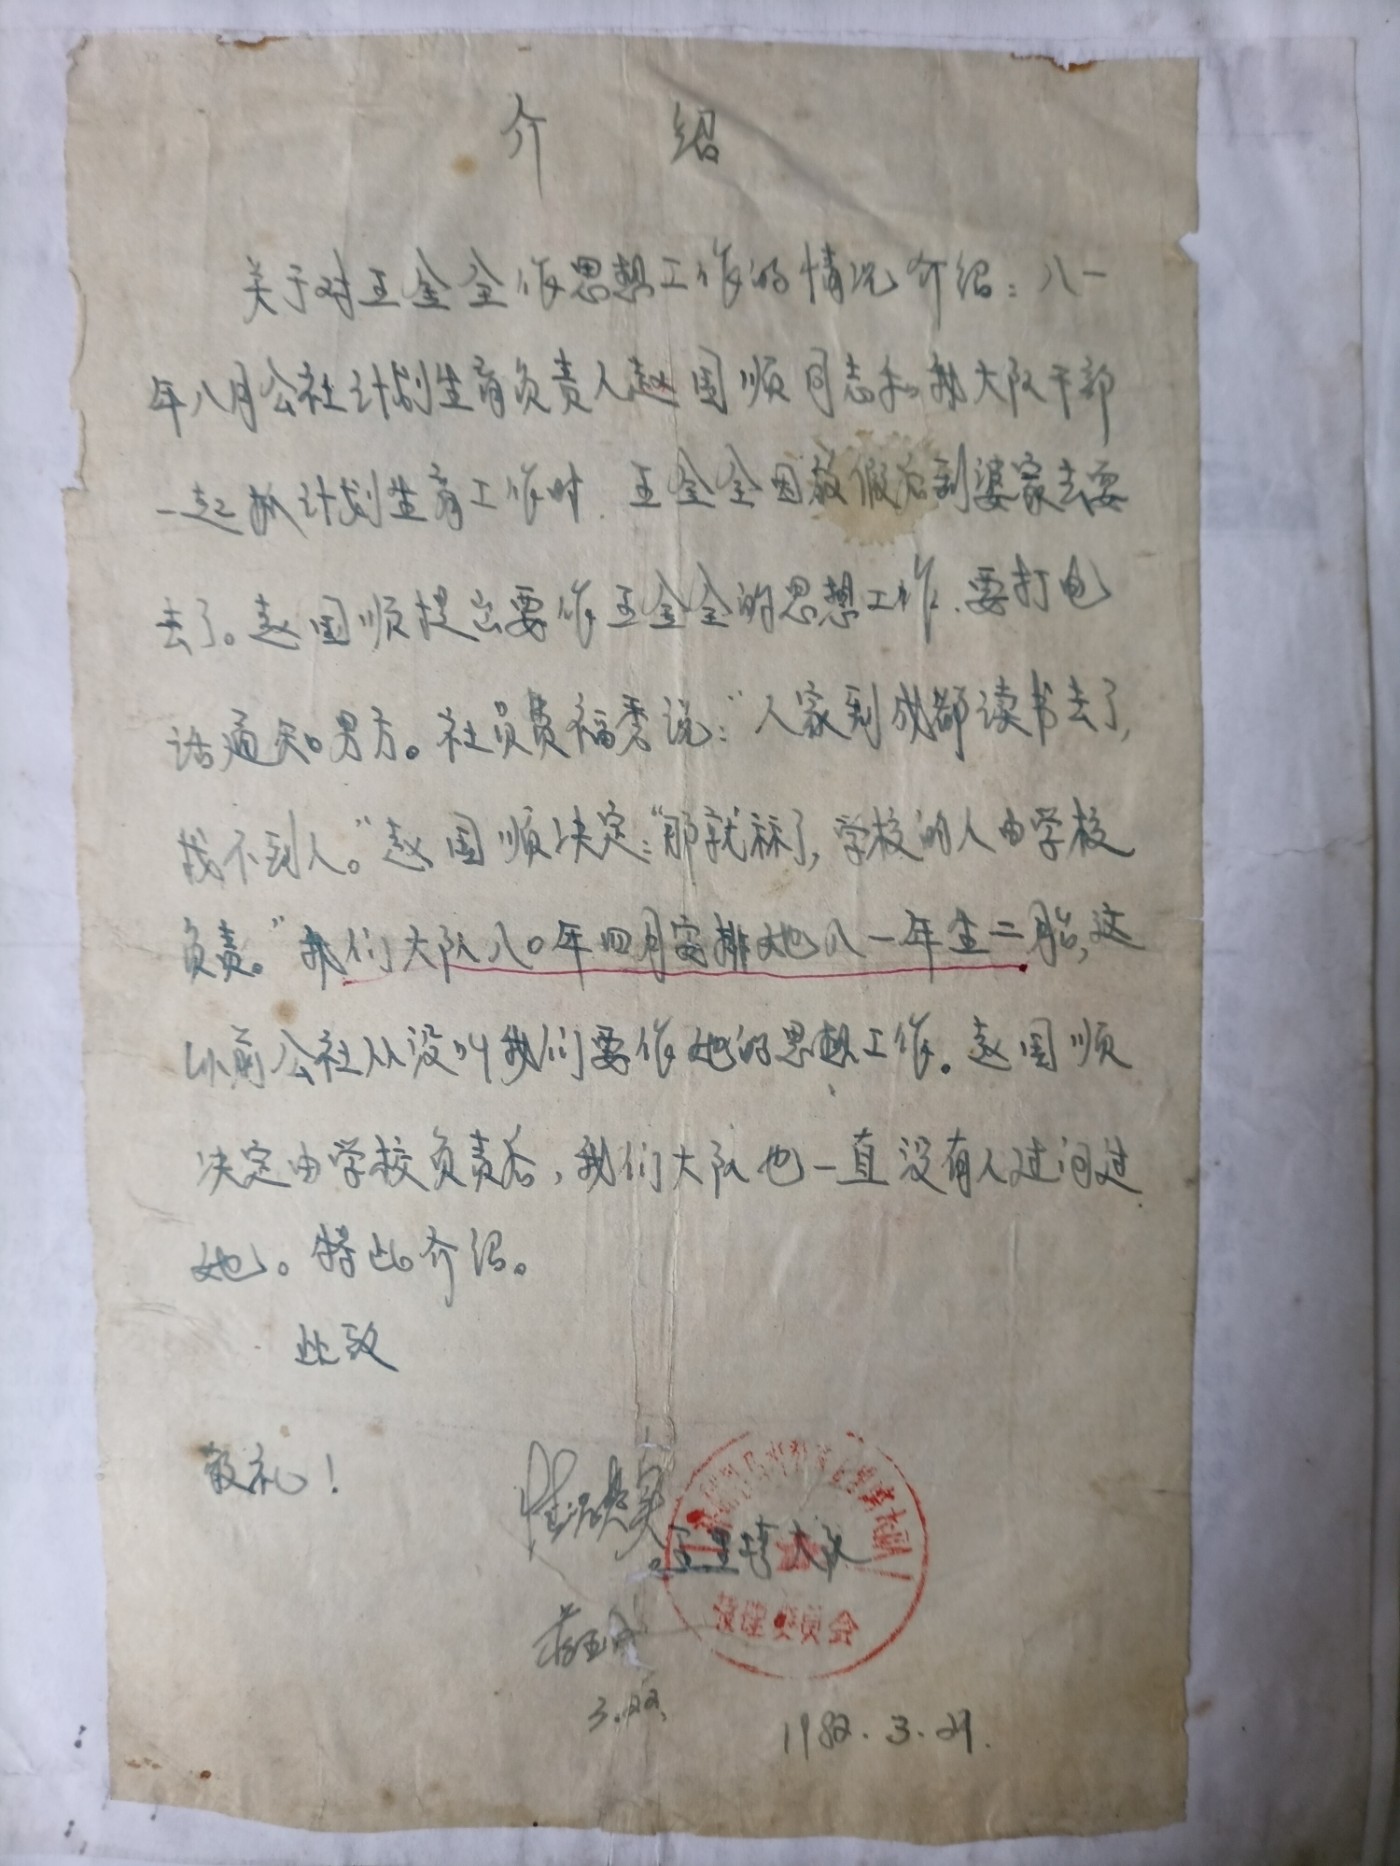 介 绍
关于对王金全作思想工作的情况介绍：八一
年八月公社计划生育负责人赵国顺同志和我大队干部
一起抓计划生育工作时．王金全因放假后到婆家去耍
去了。赵国顺提出要作王金全的思想工作．要打电
话通知男方。社员费福秀说：“人家到成都读书去了，
找不到人。”赵国顺决定：“那就算了，学校的人由学校
负责。”我们大队八〇年四月安排她八一年生二胎，这
以前公社从没叫我们要作她的思想工作。赵国顺
决定由学校负责后，我们大队也一直没有人过问过
她。特此介绍。
此致
敬礼！
大队
管理委员会
1982．3．21．